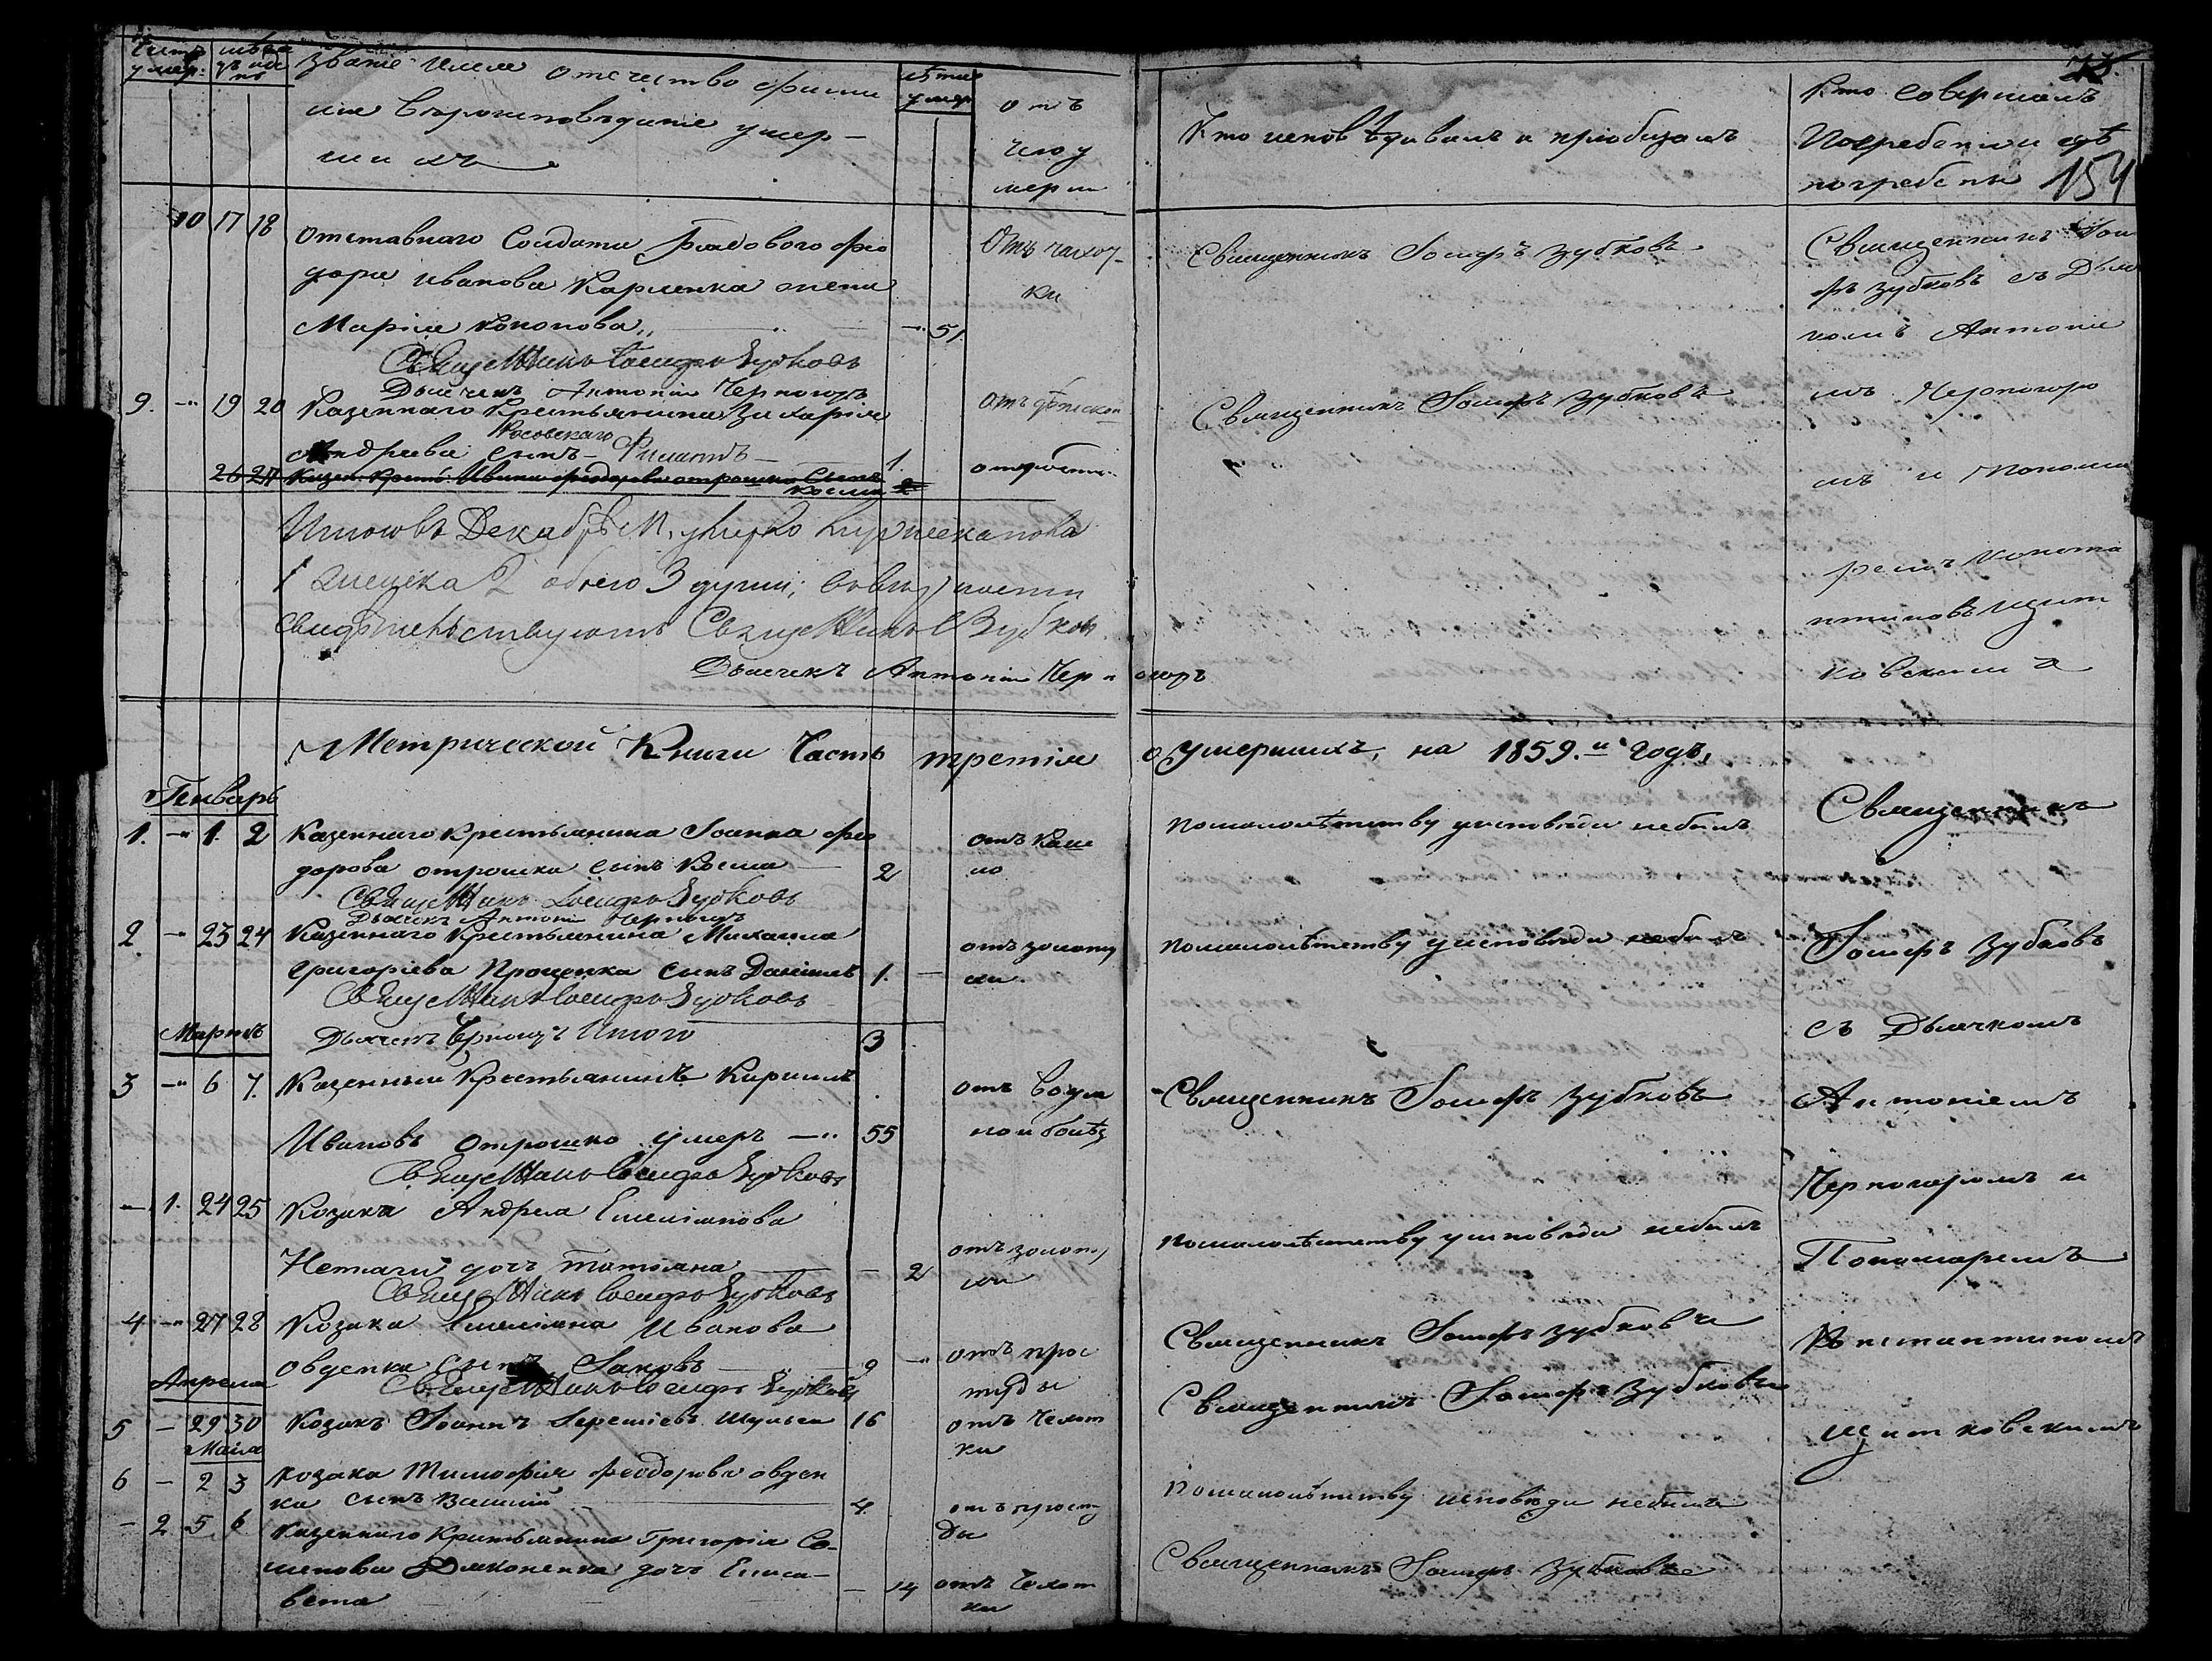 Звание имя отечество фами
лия вероисповѣдание умер-
шихъ
лѣта
умер.
отъ
чего у
мерли
Кто исповѣдывалъ и приобщалъ
Кто совершалъ
погребение и гдѣ
погребены
154
10 17 18
отставнаго Солдата рядового Фео
дора Иванова Карпенка жена
Марія Кононова 51
Отъ чахот
ки
Священникъ Іосифъ Зубковъ
Священникъ Іосифъ Зубковъ
Дьячекъ Антоній Черногоръ
9. 19 20 Казеннаго Крестьянина Захарія
Косовскаго
Андреева сынъ Филиппъ 1.
отъ
Священникъ Іосифъ Зубковъ
26 27 Казен. Крест. Ивана Феодорова отрошка Сынъ
Косма 2
Итого въ Декабрѣ М. умерло мужеска пола
1 женска 2 обоего 3 души;
свидѣтельствуютъ Священникъ І Зубковъ
Дьячекъ Антоній Черногоръ
Священникъ Іоси
фъ Зубковъ съ Дьяч
комъ Антоніе
мъ Черногоро
мъ и Понома
ремъ Конста
нтиновъ Щит
ковскимъ
Метрической Книги Часть третія о умершихъ, на 1859.й Годъ,
Генварь
1. 1. 2 Казеннаго Крестьянина Іоанна Фео
дорова отрошка сынъ Косма 2
отъ каш
лю
помалолѣтству уисповѣди небылъ
Священникъ Іосифъ Зубковъ
Дьячекъ Антоній Черногоръ
2. 23 24 Казеннаго Крестьянина Михаила
Григоріева Проценка сынъ Даніилъ 1.
отъ золоту
хи
помалолѣтству уисповѣди небылъ
Священникъ Іосифъ Зубковъ
Мартъ
Дьячекъ Черногоръ Итого 3
3 6 7. Казенный Крестьянинъ Кириллъ
Ивановъ отрошко умеръ 55
Священникъ Іосифъ Зубковъ
Священникъ Іосифъ Зубковъ
1. 24 25 Козака Андрея Емеліанова
Нетлачи дочь Татіяна 2
отъ золоту
хи
помалолѣтству уисповѣди небыла
Священникъ Іосифъ Зубковъ
4 27 28 Козака Емеліяна Иванова
Овденка сынъ Іаковъ 9
отъ прос
туды
Священникъ Іосифъ Зубковъ
Священникъ Іосифъ Зубковъ
Апреля
5 29 30 Козакъ Іоаннъ Іереміевъ Шульга 16
отъ Чехот
ки
Священникъ Іосифъ Зубковъ
Мая
6 2 3 козака Тимофія Феодорова овден
ка сынъ Василій 4.
отъ просту
ды
Помалолѣтству исповѣди небылъ
2 5 6 Казеннаго Крестьянина Григорія Се-
менова Дяконенка дочь Елиса-
вета 14
отъ Чехот
ки
Священникъ Іосифъ Зубковъ
Священникъ
Іосифъ Зубковъ
съ Дьячкомъ
Антоніемъ
Черногоромъ и
Пономаремъ
Константиномъ
Щитковскимъ